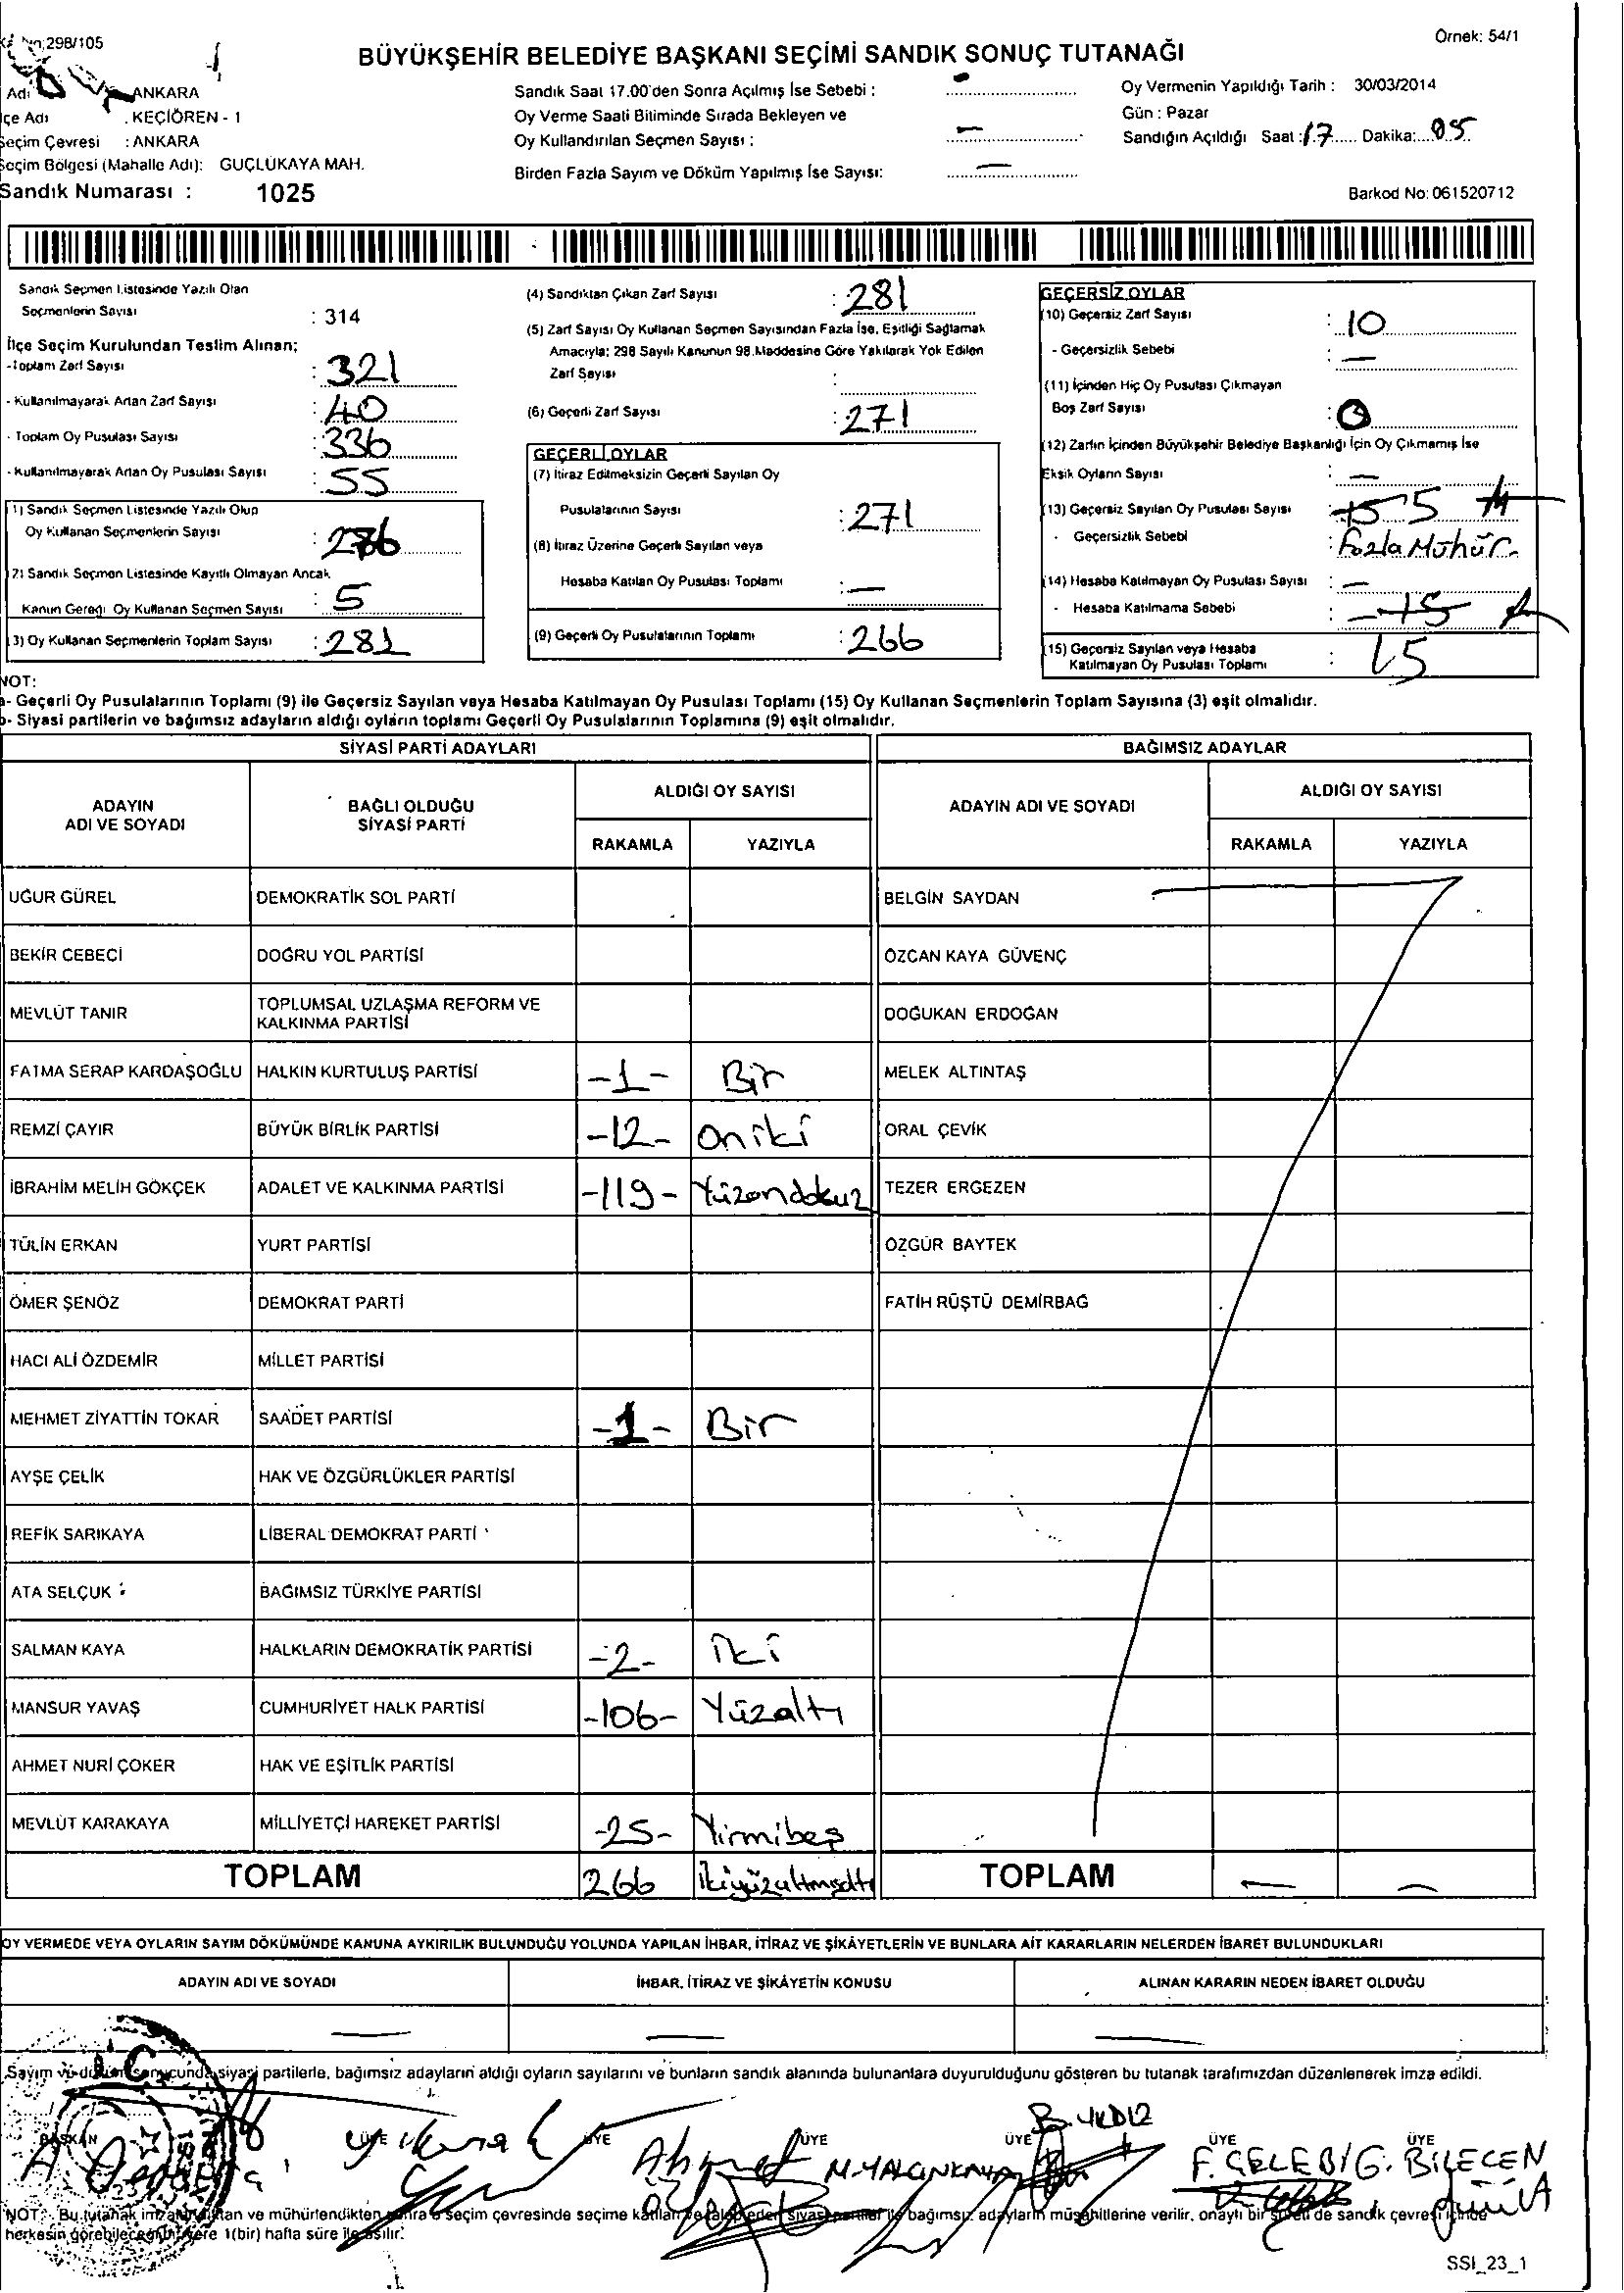 298/105
Örnek: 54/1
BÜYÜKŞEHİR BELEDİYE BAŞKANI SEÇİMİ SANDIK SONUÇ TUTANAĞI
Adı ANKARA
İlçe Adı : KEÇİÖREN - 1
Seçim Çevresi : ANKARA
Seçim Bölgesi (Mahalle Adı): GUÇLÜKAYA MAH.
Sandık Numarası : 1025
Sandık Saat 17.00'den Sonra Açılmış İse Sebebi : –
Oy Verme Saati Bitiminde Sırada Bekleyen ve
Oy Kullandırılan Seçmen Sayısı : –
Birden Fazla Sayım ve Döküm Yapılmış İse Sayısı: –
Oy Vermenin Yapıldığı Tarih : 30/03/2014
Gün : Pazar
Sandığın Açıldığı Saat : 17 Dakika: 05
Barkod No: 061520712
Sandık Seçmen Listesinde Yazılı Olan
Seçmenlerin Sayısı : 314
İlçe Seçim Kurulundan Teslim Alınan;
-Toplam Zarf Sayısı : 321
- Kullanılmayarak Artan Zarf Sayısı : 40
- Toplam Oy Pusulası Sayısı : 336
- Kullanılmayarak Artan Oy Pusulası Sayısı : 55
(1) Sandık Seçmen Listesinde Yazılı Olup
Oy Kullanan Seçmenlerin Sayısı : 276
(2) Sandık Seçmen Listesinde Kayıtlı Olmayan Ancak
Kanun Gereği Oy Kullanan Seçmen Sayısı : 5
(3) Oy Kullanan Seçmenlerin Toplam Sayısı : 281
(4) Sandıktan Çıkan Zarf Sayısı : 281
(5) Zarf Sayısı Oy Kullanan Seçmen Sayısından Fazla İse, Eşitliği Sağlamak
Amacıyla; 298 Sayılı Kanunun 98.Maddesine Göre Yakılarak Yok Edilen
Zarf Sayısı :
(6) Geçerli Zarf Sayısı : 271
GEÇERLİ OYLAR
(7) İtiraz Edilmeksizin Geçerli Sayılan Oy
Pusulalarının Sayısı : 271
(8) İtiraz Üzerine Geçerli Sayılan veya
Hesaba Katılan Oy Pusulası Toplamı : –
(9) Geçerli Oy Pusulalarının Toplamı : 266
GEÇERSİZ OYLAR
(10) Geçersiz Zarf Sayısı : 10
- Geçersizlik Sebebi : –
(11) İçinden Hiç Oy Pusulası Çıkmayan
Boş Zarf Sayısı : 0
(12) Zarfın İçinden Büyükşehir Belediye Başkanlığı İçin Oy Çıkmamış İse
Eksik Oyların Sayısı : –
(13) Geçersiz Sayılan Oy Pusulası Sayısı : 15 5
- Geçersizlik Sebebi : Fazla Mühür
(14) Hesaba Katılmayan Oy Pusulası Sayısı : –
- Hesaba Katılmama Sebebi : 15
(15) Geçersiz Sayılan veya Hesaba
Katılmayan Oy Pusulası Toplamı : 15
NOT:
a- Geçerli Oy Pusulalarının Toplamı (9) ile Geçersiz Sayılan veya Hesaba Katılmayan Oy Pusulası Toplamı (15) Oy Kullanan Seçmenlerin Toplam Sayısına (3) eşit olmalıdır.
b- Siyasi partilerin ve bağımsız adayların aldığı oyların toplamı Geçerli Oy Pusulalarının Toplamına (9) eşit olmalıdır.
SİYASİ PARTİ ADAYLARI BAĞIMSIZ ADAYLAR
ADAYIN
ADI VE SOYADI
BAĞLI OLDUĞU
SİYASİ PARTİ
ALDIĞI OY SAYISI
RAKAMLA YAZIYLA
ADAYIN ADI VE SOYADI
ALDIĞI OY SAYISI
RAKAMLA YAZIYLA
UĞUR GÜREL DEMOKRATİK SOL PARTİ BELGİN SAYDAN
BEKİR CEBECİ DOĞRU YOL PARTİSİ ÖZCAN KAYA GÜVENÇ
MEVLÜT TANIR TOPLUMSAL UZLAŞMA REFORM VE
KALKINMA PARTİSİ DOĞUKAN ERDOĞAN
FATMA SERAP KARDAŞOĞLU HALKIN KURTULUŞ PARTİSİ -1- Bir MELEK ALTINTAŞ
REMZİ ÇAYIR BÜYÜK BİRLİK PARTİSİ -12- oniki ORAL ÇEVİK
İBRAHİM MELİH GÖKÇEK ADALET VE KALKINMA PARTİSİ -119- Yüzondokuz TEZER ERGEZEN
TÜLİN ERKAN YURT PARTİSİ ÖZGÜR BAYTEK
ÖMER ŞENÖZ DEMOKRAT PARTİ FATİH RÜŞTÜ DEMİRBAĞ
HACI ALİ ÖZDEMİR MİLLET PARTİSİ
MEHMET ZİYATTİN TOKAR SAADET PARTİSİ -1- Bir
AYŞE ÇELİK HAK VE ÖZGÜRLÜKLER PARTİSİ
REFİK SARIKAYA LİBERAL DEMOKRAT PARTİ
ATA SELÇUK BAĞIMSIZ TÜRKİYE PARTİSİ
SALMAN KAYA HALKLARIN DEMOKRATİK PARTİSİ -2- iki
MANSUR YAVAŞ CUMHURİYET HALK PARTİSİ -106- Yüzaltı
AHMET NURİ ÇOKER HAK VE EŞİTLİK PARTİSİ
MEVLÜT KARAKAYA MİLLİYETÇİ HAREKET PARTİSİ -25- Yirmibeş
TOPLAM 266 ikiyüzaltmışaltı TOPLAM – –
OY VERMEDE VEYA OYLARIN SAYIM DÖKÜMÜNDE KANUNA AYKIRILIK BULUNDUĞU YOLUNDA YAPILAN İHBAR, İTİRAZ VE ŞİKÂYETLERİN VE BUNLARA AİT KARARLARIN NELERDEN İBARET BULUNDUKLARI
ADAYIN ADI VE SOYADI İHBAR, İTİRAZ VE ŞİKÂYETİN KONUSU ALINAN KARARIN NEDEN İBARET OLDUĞU
– – –
Sayım ve döküm sonucunda siyasi partilerle, bağımsız adayların aldığı oyların sayılarını ve bunların sandık alanında bulunanlara duyurulduğunu gösteren bu tutanak tarafımızdan düzenlenerek imza edildi.
B. YILDIZ
BAŞKAN ÜYE ÜYE ÜYE ÜYE ÜYE ÜYE
Ahmet M. YALÇINKAYA F. ÇELEBİ G. BİLECEN
NOT: Bu tutanak imzalandıktan ve mühürlendikten sonra o seçim çevresinde seçime katılan ve talep eden siyasi partiler ile bağımsız adayların müşahitlerine verilir, onaylı bir sureti de sandık çevresi içinde
herkesin görebileceği bir yere 1(bir) hafta süre ile asılır.
SSI_23_1